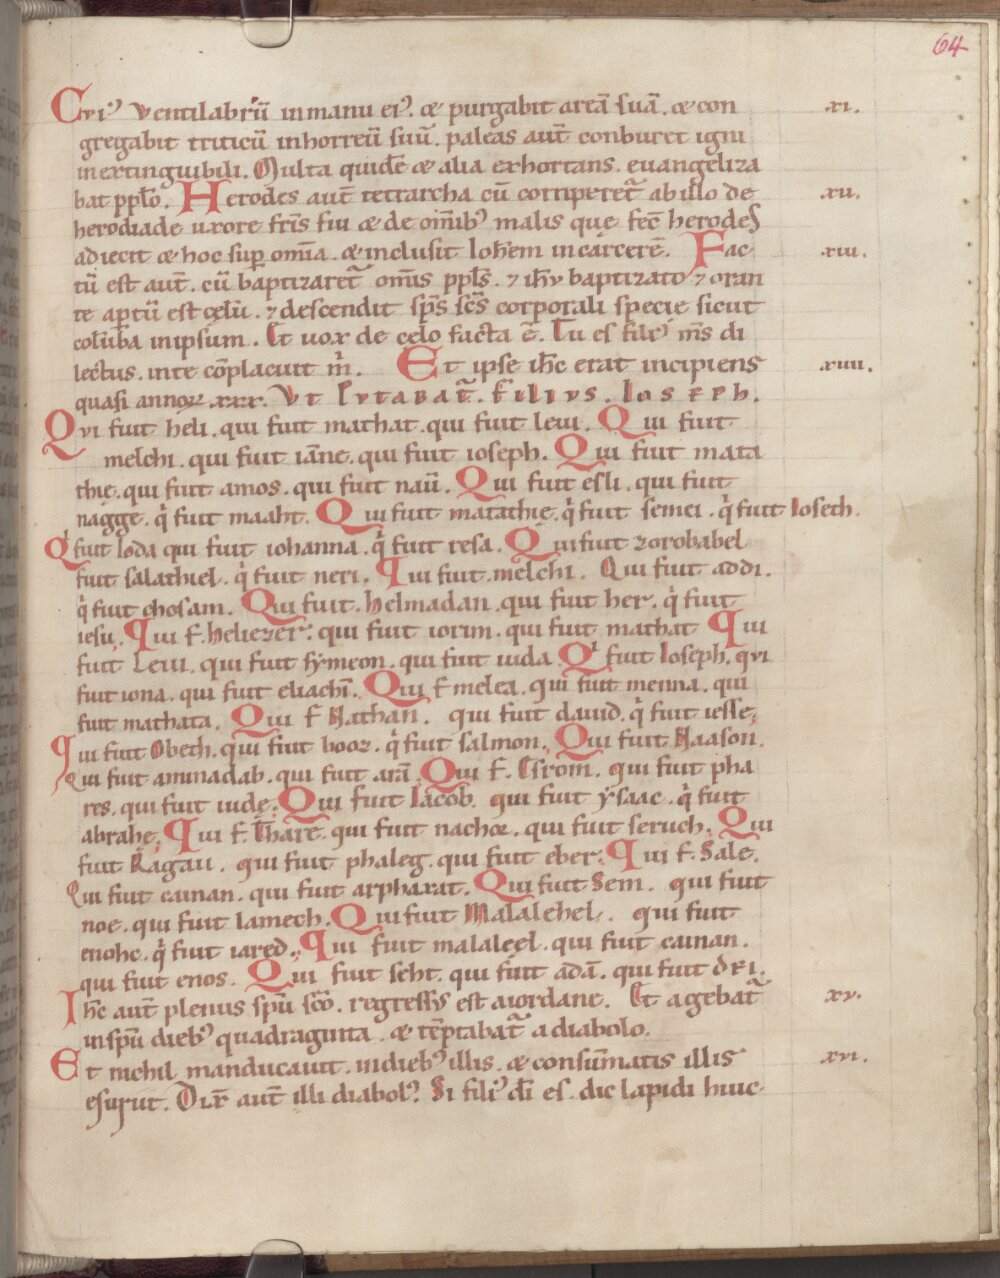 64
Cui᾽ ventilabrū in manu ei᾽. & purgabit areā suā. & con xi.
gregabit triticū in horreū suū. paleas aut̄ conburet igni
inextinguibili. Multa quidē & alia exhortans. evangeliza
bat pplo̅. Herodes aut̄ tetrarcha cū corriperet᷑ ab illo de xii.
herodiade uxore fr̄is sui & de om̄ib᾽ malis que fec̄ herodes
adiecit & hoc sup̱ om̄ia. & inclusit Ioh̄em in carcerē. Fac xiii.
tū est aut̄. cū baptizaret᷑ om̄is ppl̄s. ⁊ ih̄u baptizato ⁊ oran
te ap̱tū est cęlū. ⁊ descendit sp̄s sc̄s corporali specie sicut
colūba in ipsum. Et uox de cęlo facta ē. Tu es fili᾽ m̄s di
lectus. in te cōplacuit m̄. Et ipse ih̄c erat incipiens xiiii.
quasi annoꝝ xxx. Ut putabat᷑. Filius. Ioseph.
Qui fuit heli. qui fuit mathat. qui fuit leui. Qui fuit
melchi. qui fuit iāne. qui fuit ioseph. Qui fuit mata
thię. qui fuit amos. qui fuit naū. Qui fuit esli. qui fuit
nagge. q̍ fuit maaht. Qui fuit matathię. q̍ fuit semei. q̍ fuit Iosech.
Q̍ fuit Ioda qui fuit iohanna. q̍ fuit resa. Qui fuit zorobabel
fuit salathiel. q̍ fuit neri. Qui fuit melchi. Qui fuit addi.
q̍ fuit chosam. Qui fuit. helmadan. qui fuit her. q̍ fuit
iesu. Qui f. heliezer. qui fuit iorim. qui fuit mathat Qui
fuit Leui. qui fuit symeon. qui fuit iuda. Q̍ fuit Ioseph. qui
fuit iona. qui fuit eliachī. Qui f melea. qui fuit menna. qui
fuit mathata. Qui f Nathan. qui fuit dauid. q̍ fuit iesse.
Qui fuit Obeth. qui fuit booz. q̍ fuit salmon. Qui fuit Naason.
Qui fuit aminadab. qui fuit arā. Qui f. Esrom. qui fuit pha
res. qui fuit iudę. Qui fuit Iacob. qui fuit ysaac. q̍ fuit
abrahę. Qui f. Thare. qui fuit nachor. qui fuit seruch. Qui
fuit Ragau. qui fuit phaleg. qui fuit eber. Qui f. Sale.
Qui fuit cainan. qui fuit arphaxat. Qui fuit Sem. qui fuit
noe. qui fuit lamech. Qui fuit Malalehel. qui fuit
enohc. q̍ fuit iared. Qui fuit malaleel. qui fuit cainan.
qui fuit enos. Qui fuit seht. qui fuit adā. qui fuit dei.
Ih̄c aut̄ plenus spū scō. regressus est a iordane. Et agebat᷑ xv.
in spū dieb᾽ quadraginta. & tēptabat᷑ a diabolo.
Et nichil manducauit. in dieb᾽ illis. & consummatis illis xvi.
esuriit. Dix̄ aut̄ illi diabol᾽. Si fili᾽ dī es. dic lapidi huic